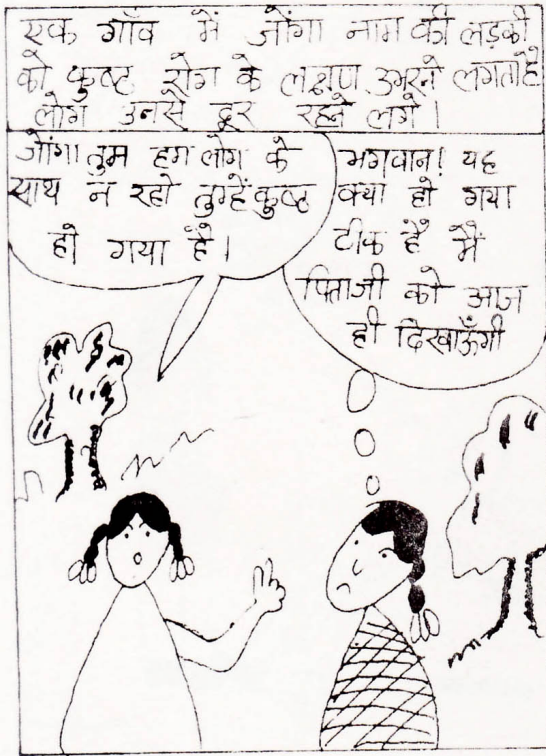 एक गाँव में जोंगा नाम की लड़की
को कुष्ट रोग के लक्षण उभरने लगता है
लोग उनसे दूर रहने लगे।
जोंगा तुम हम लोग के
साथ न रहो तुम्हें कुष्ट
हो गया है।
भगवान! यह
क्या हो गया
ठीक हैं मैं
पिताजी को आज
ही दिखाऊँगी